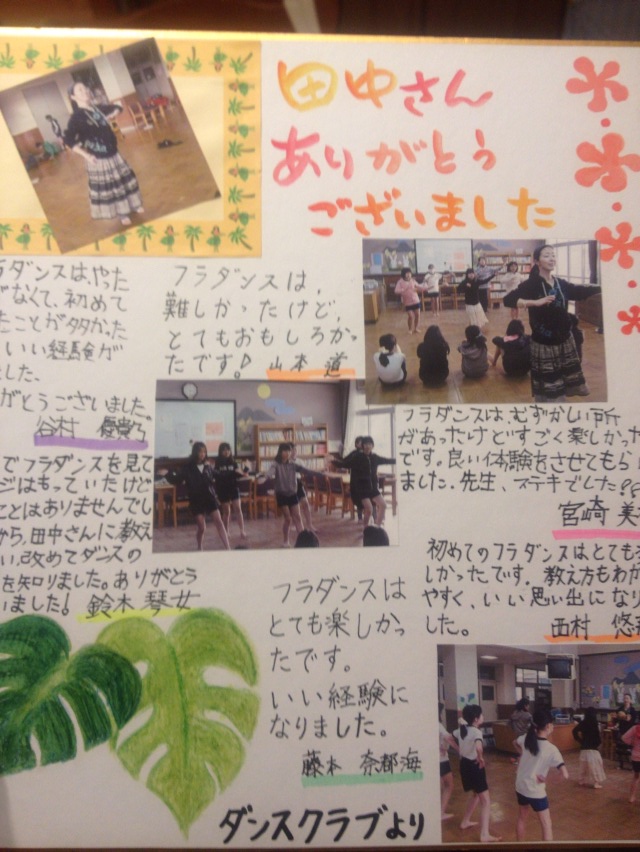 田中さん
ありがとう
ございました
ラダンスは、やった
でなくて、初めて
たことが多かった
いい経験が
ました、
がとうございました。
谷村
フラダンスは、
難しかったけど、
とてもおもしろかっ
たです!
山本 道
でフラダンスを見て
ジはもっていたけど
ことはありませんでし
から、田中さんに教え
い、改めてダンスの
を知りました。ありがとう
いました!
鈴木 琴女
フラダンスは、むずかしい所
があったけどすごく楽しかった
です。良い体験をさせてもら
ました。先生、ステキでした
宮崎 美
初めてのフラダンスはとても
しかったです。教え方もわか
やすく、いい思い出になり
した。
西村 悠
フラダンスは
とても楽しかっ
たです。
いい経験に
なりました。
藤本 奈都海
ダンスクラブより